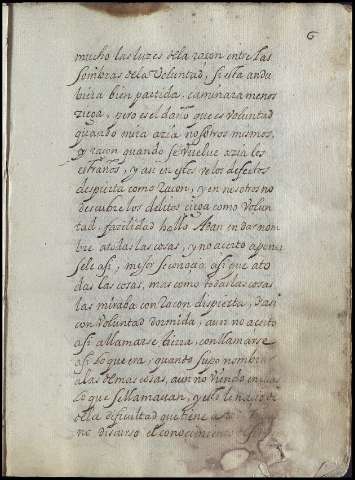 6
mucho las luzes de la raçon entre las
sombras de la Voluntad, si esta andu
biera bien partida, caminara menos
ziega, pero es el daño que es Voluntad
quando mira azia nosotros mismos,
y raçon quando se vuelve azia los
estraños, y asi en estos ve los defectos
despierta como raçon, y en nosotros no
descubre los delitos ciega como Volun
tad, facilidad hallo Adan en dar nom
bre a todas las cosas, y no acerto a poner
sele asi, mejor se conozia asi que a to
das las cosas, mas como todas las cosas
las miraba con raçon despierta, y asi
con Voluntad dormida, aun no acerto
asi llamarse tierra, con llamarse
asi lo que era, quando supo nombrar
a las demas cosas, aun no viendo en ellas
lo que se llamauan, y esto le naze
de la dificultad que tiene
no discurso el conocimiento